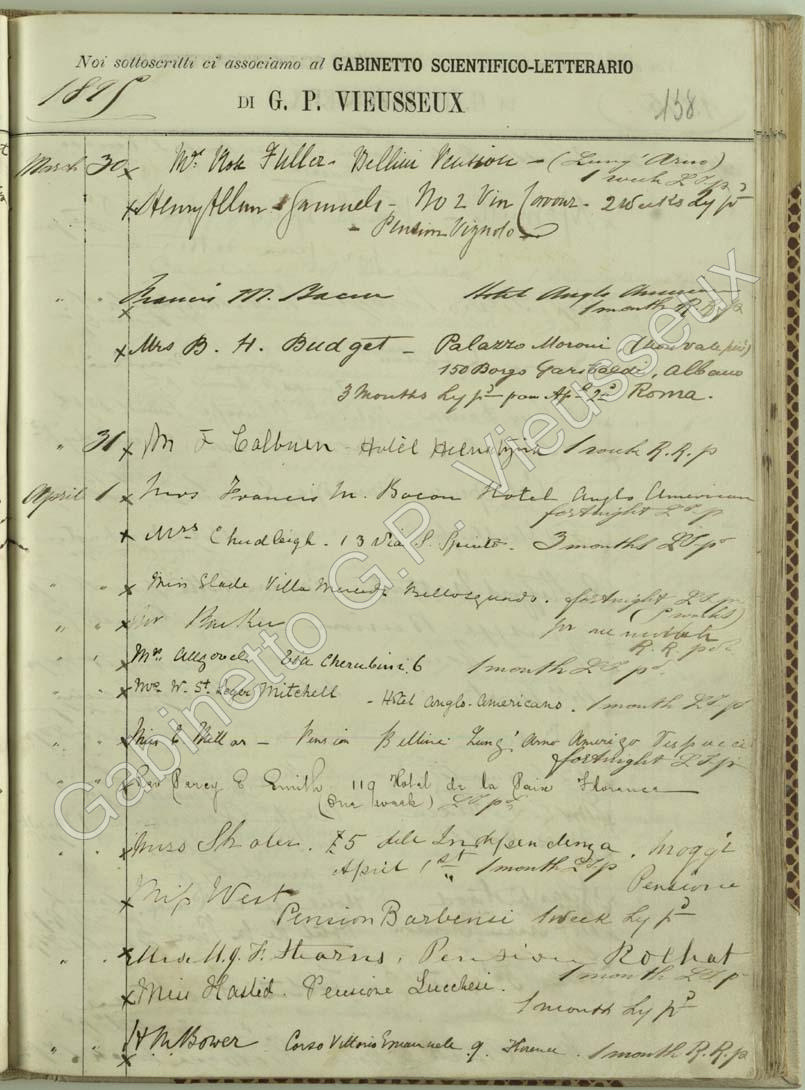 Noi sottoscritti ci associamo al GABINETTO SCIENTIFICO-LETTERARIO
1895
DI G. P. VIEUSSEUX
158
March 30 x Mrs Fuller - Bellini Pension - (Lung' Arno)
1 week LTp
x Henry Allan Samuels - No 2 Via Cavour - 2 weeks Ly pd
- Pension Vignolo
" " x Francis M. Bacon Hotel Anglo American
1 month R.R. p
x Mrs B. H. Budget - Palazzo Moroni
150 Borgo Garibaldi, Albano
3 Months Ly pd from Ap 2d Roma.
" 31 x F Colburn - Hotel 1 month R.R. p
April 1 x Mrs Francis M. Bacon Hotel Anglo American
fortnight LT p
x Mrs Chudleigh . 13 Via S. Spirito . 3 months LT pd
" " x Miss Slade Villa Bellosguardo . fortnight LT p
(2 weeks)
" " x Mr Barker for one month
R.R. pd
" " x Mrs Via Cherubini 6 1 month LT pd
" " x W. St. Mitchell - Hôtel Anglo-Americano . 1 month LT pd
" " x Miss E Mellor - Pension Bellini Lung' Arno Amerigo Vespucci
fortnight LT p
" " x Rev Percy E Smith 119 Hotel de la Paix Florence
(One week) LT pd
" x 5 dell Independenza .
April 1st 1 month LT p Pensione
x Miss West
Pension Barbensi 1 week Ly pd
" " x H. J. F. Stearns, Pension Rochat
1 month LT p
x Miss Haslid . Pensione Lucchesi .
1 month Ly pd
" " x H. M. Bower Corso Vittorio Emanuele 9 . Florence . 1 month R.R. p
Gabinetto G.P. Vieusseux